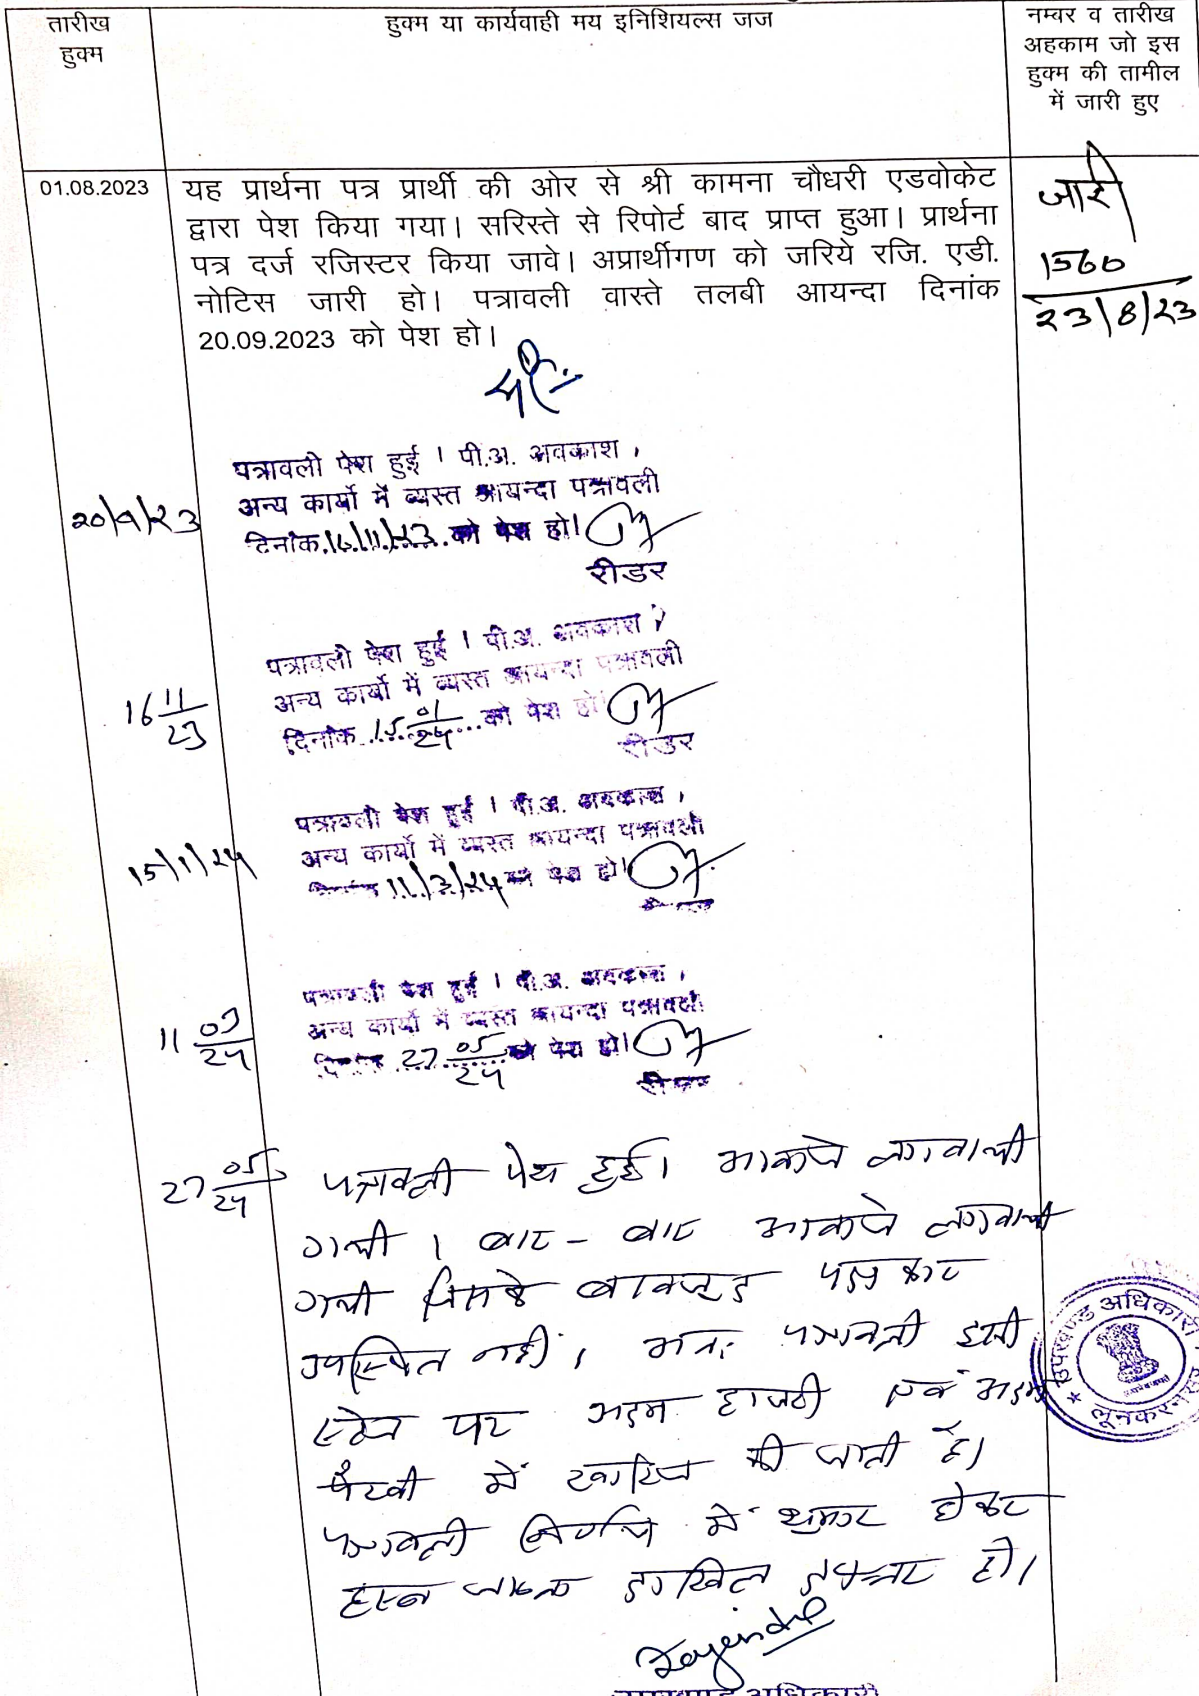 तारीख
हुक्म
हुक्म या कार्यवाही मय इनिशियल्स जज
नम्बर व तारीख
अहकाम जो इस
हुक्म की तामील
में जारी हुए
01.08.2023
यह प्रार्थना पत्र प्रार्थी की ओर से श्री कामना चौधरी एडवोकेट
द्वारा पेश किया गया। सरिस्ते से रिपोर्ट बाद प्राप्त हुआ। प्रार्थना
पत्र दर्ज रजिस्टर किया जावे। अप्रार्थीगण को जरिये रजि. एडी.
नोटिस जारी हो। पत्रावली वास्ते तलबी आयन्दा दिनांक
20.09.2023 को पेश हो।
जारी
1560
23/8/23
20/9/23
पत्रावली पेश हुई । पी.अ. अवकाश ,
अन्य कार्यो में व्यस्त आयन्दा पत्रावली
दिनांक.16/11/23. को पेश हो।
रीडर
16 11/23
पत्रावली पेश हुई । पी.अ. अवकाश ,
अन्य कार्यो में व्यस्त आयन्दा पत्रावली
दिनांक 15 01/24 को पेश हो।
रीडर
15/1/24
पत्रावली पेश हुई । पी.अ. अवकाश ,
अन्य कार्यो में व्यस्त आयन्दा पत्रावली
दिनांक 11/3/24 को पेश हो।
रीडर
11 03/24
पत्रावली पेश हुई । पी.अ. अवकाश ,
अन्य कार्यो में व्यस्त आयन्दा पत्रावली
दिनांक 27 05/24 को पेश हो।
रीडर
27 05/24
पत्रावली पेश हुई। आवाजे लगवायी
गयी । बार - बार आवाजे लगवायी
गयी जिसके बावजूद पक्षकार
उपस्थित नहीं, अतः पत्रावली इसी
स्टेज पर अदम हाजरी एवं अदम
पैरवी में खारिज की जाती है।
पत्रावली निर्णय में शुमार होकर
दाखिल दफ्तर हो।
Rajendra
उपखण्ड अधिकारी
उपखण्ड अधिकारी
लूनकरनसर